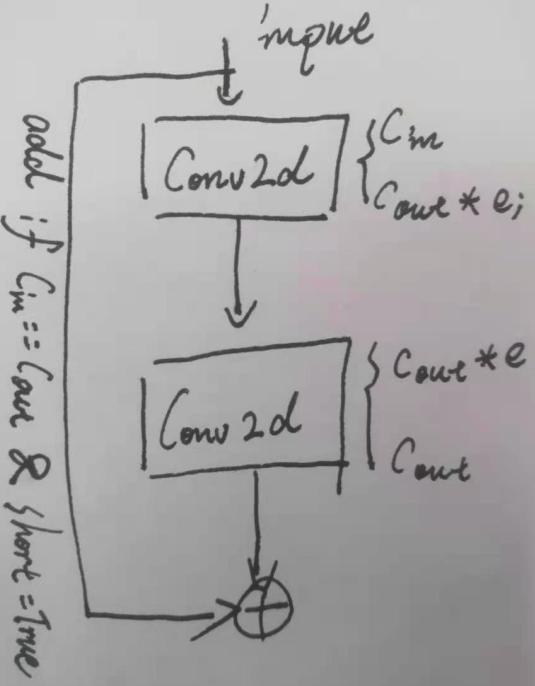 input
Conv2d
Cin
Cout * e;
Conv2d
Cout * e
Cout
add if Cin == Cout & short = True